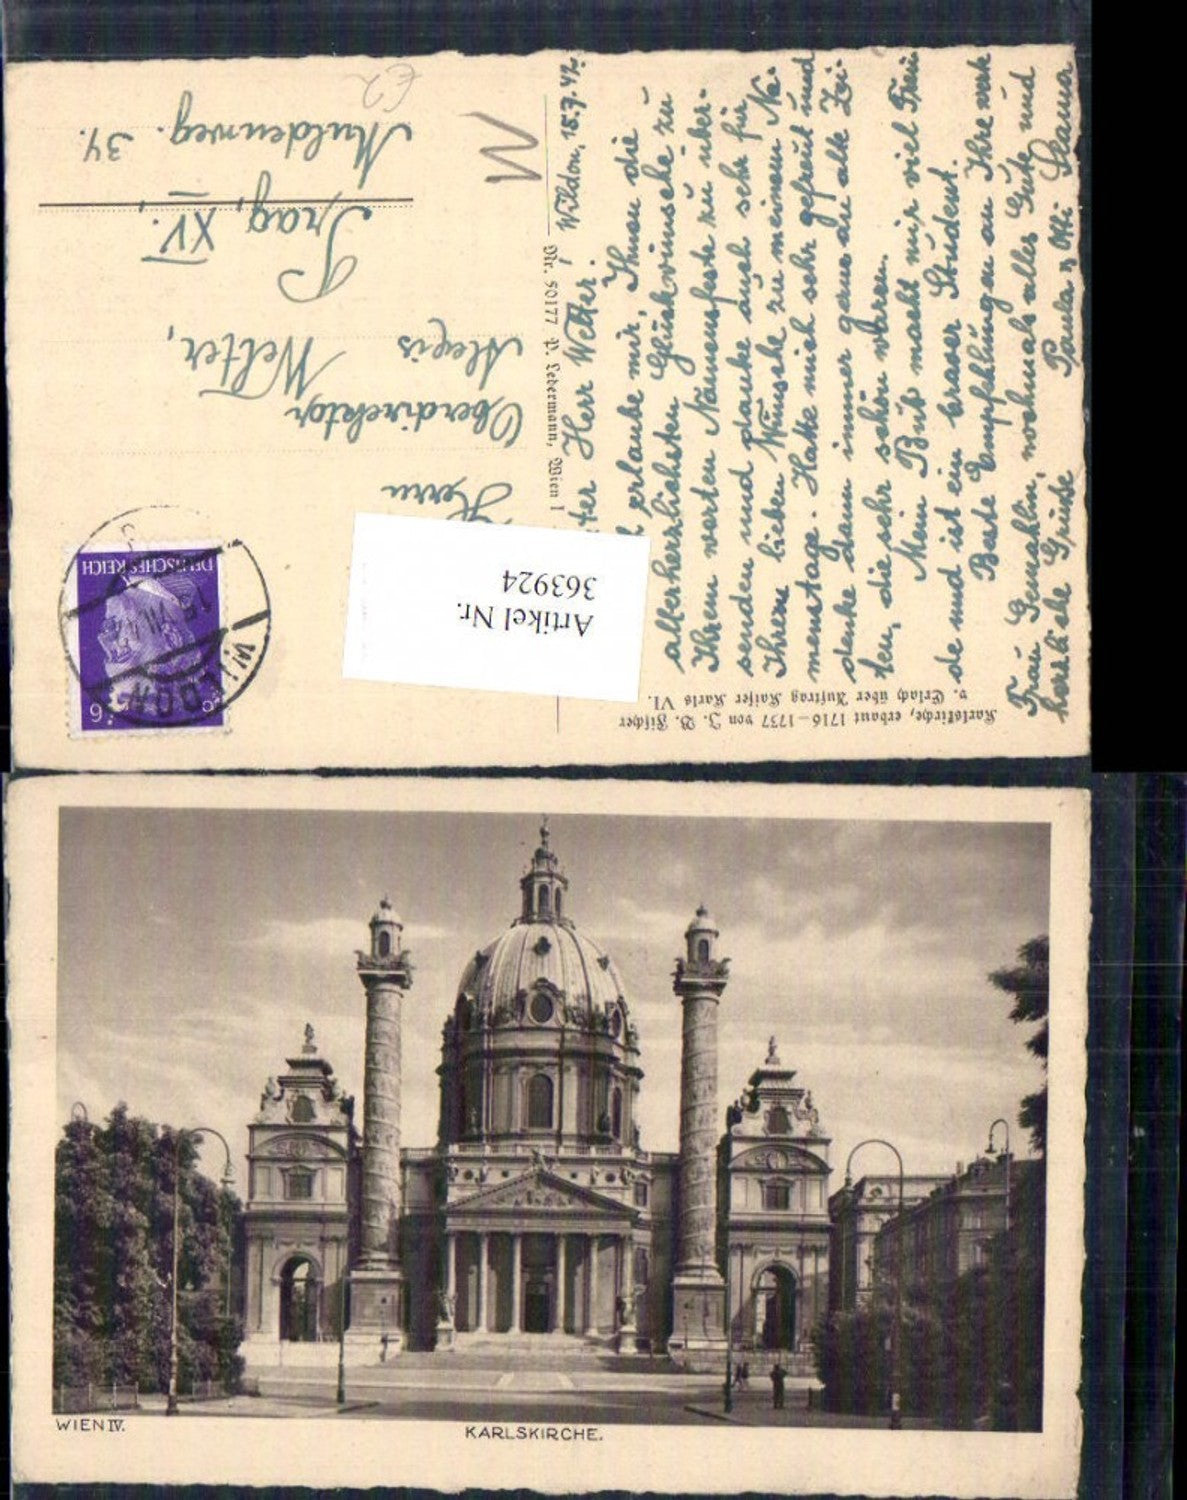 Herrn
Oberdirektor
Alexis Welter,
Prag, XV.,
Muldenweg. 34.
DEUTSCHES REICH
6
WILDON
15. VII.
Artikel Nr.
363924
Karlskirche, erbaut 1716–1737 von J. B. Fischer
v. Erlach über Auftrag Kaiser Karls VI.
Nr. 50177 P. Ledermann, Wien I
Wildon, 15.7.42.
ter Herr Welter!
erlaube mir, Ihnen die
allerherzlichsten Glückwünsche zu
Ihrem werten Namensfeste zu über-
senden und danke auch sehr für
Ihren lieben Wünsche zu meinem Na-
menstage. Hatte mich sehr gefreut und
denke dann immer ganz an die alte Zei-
ten, die sehr schön waren.
Mein Bub macht mir viel Freu
de und ist ein braver Student.
Beste Empfehlungen an Ihre werte
Frau Gemahlin, nochmals alles Gute und
herzliche Grüße Paula u Otti
WIEN IV.
KARLSKIRCHE.